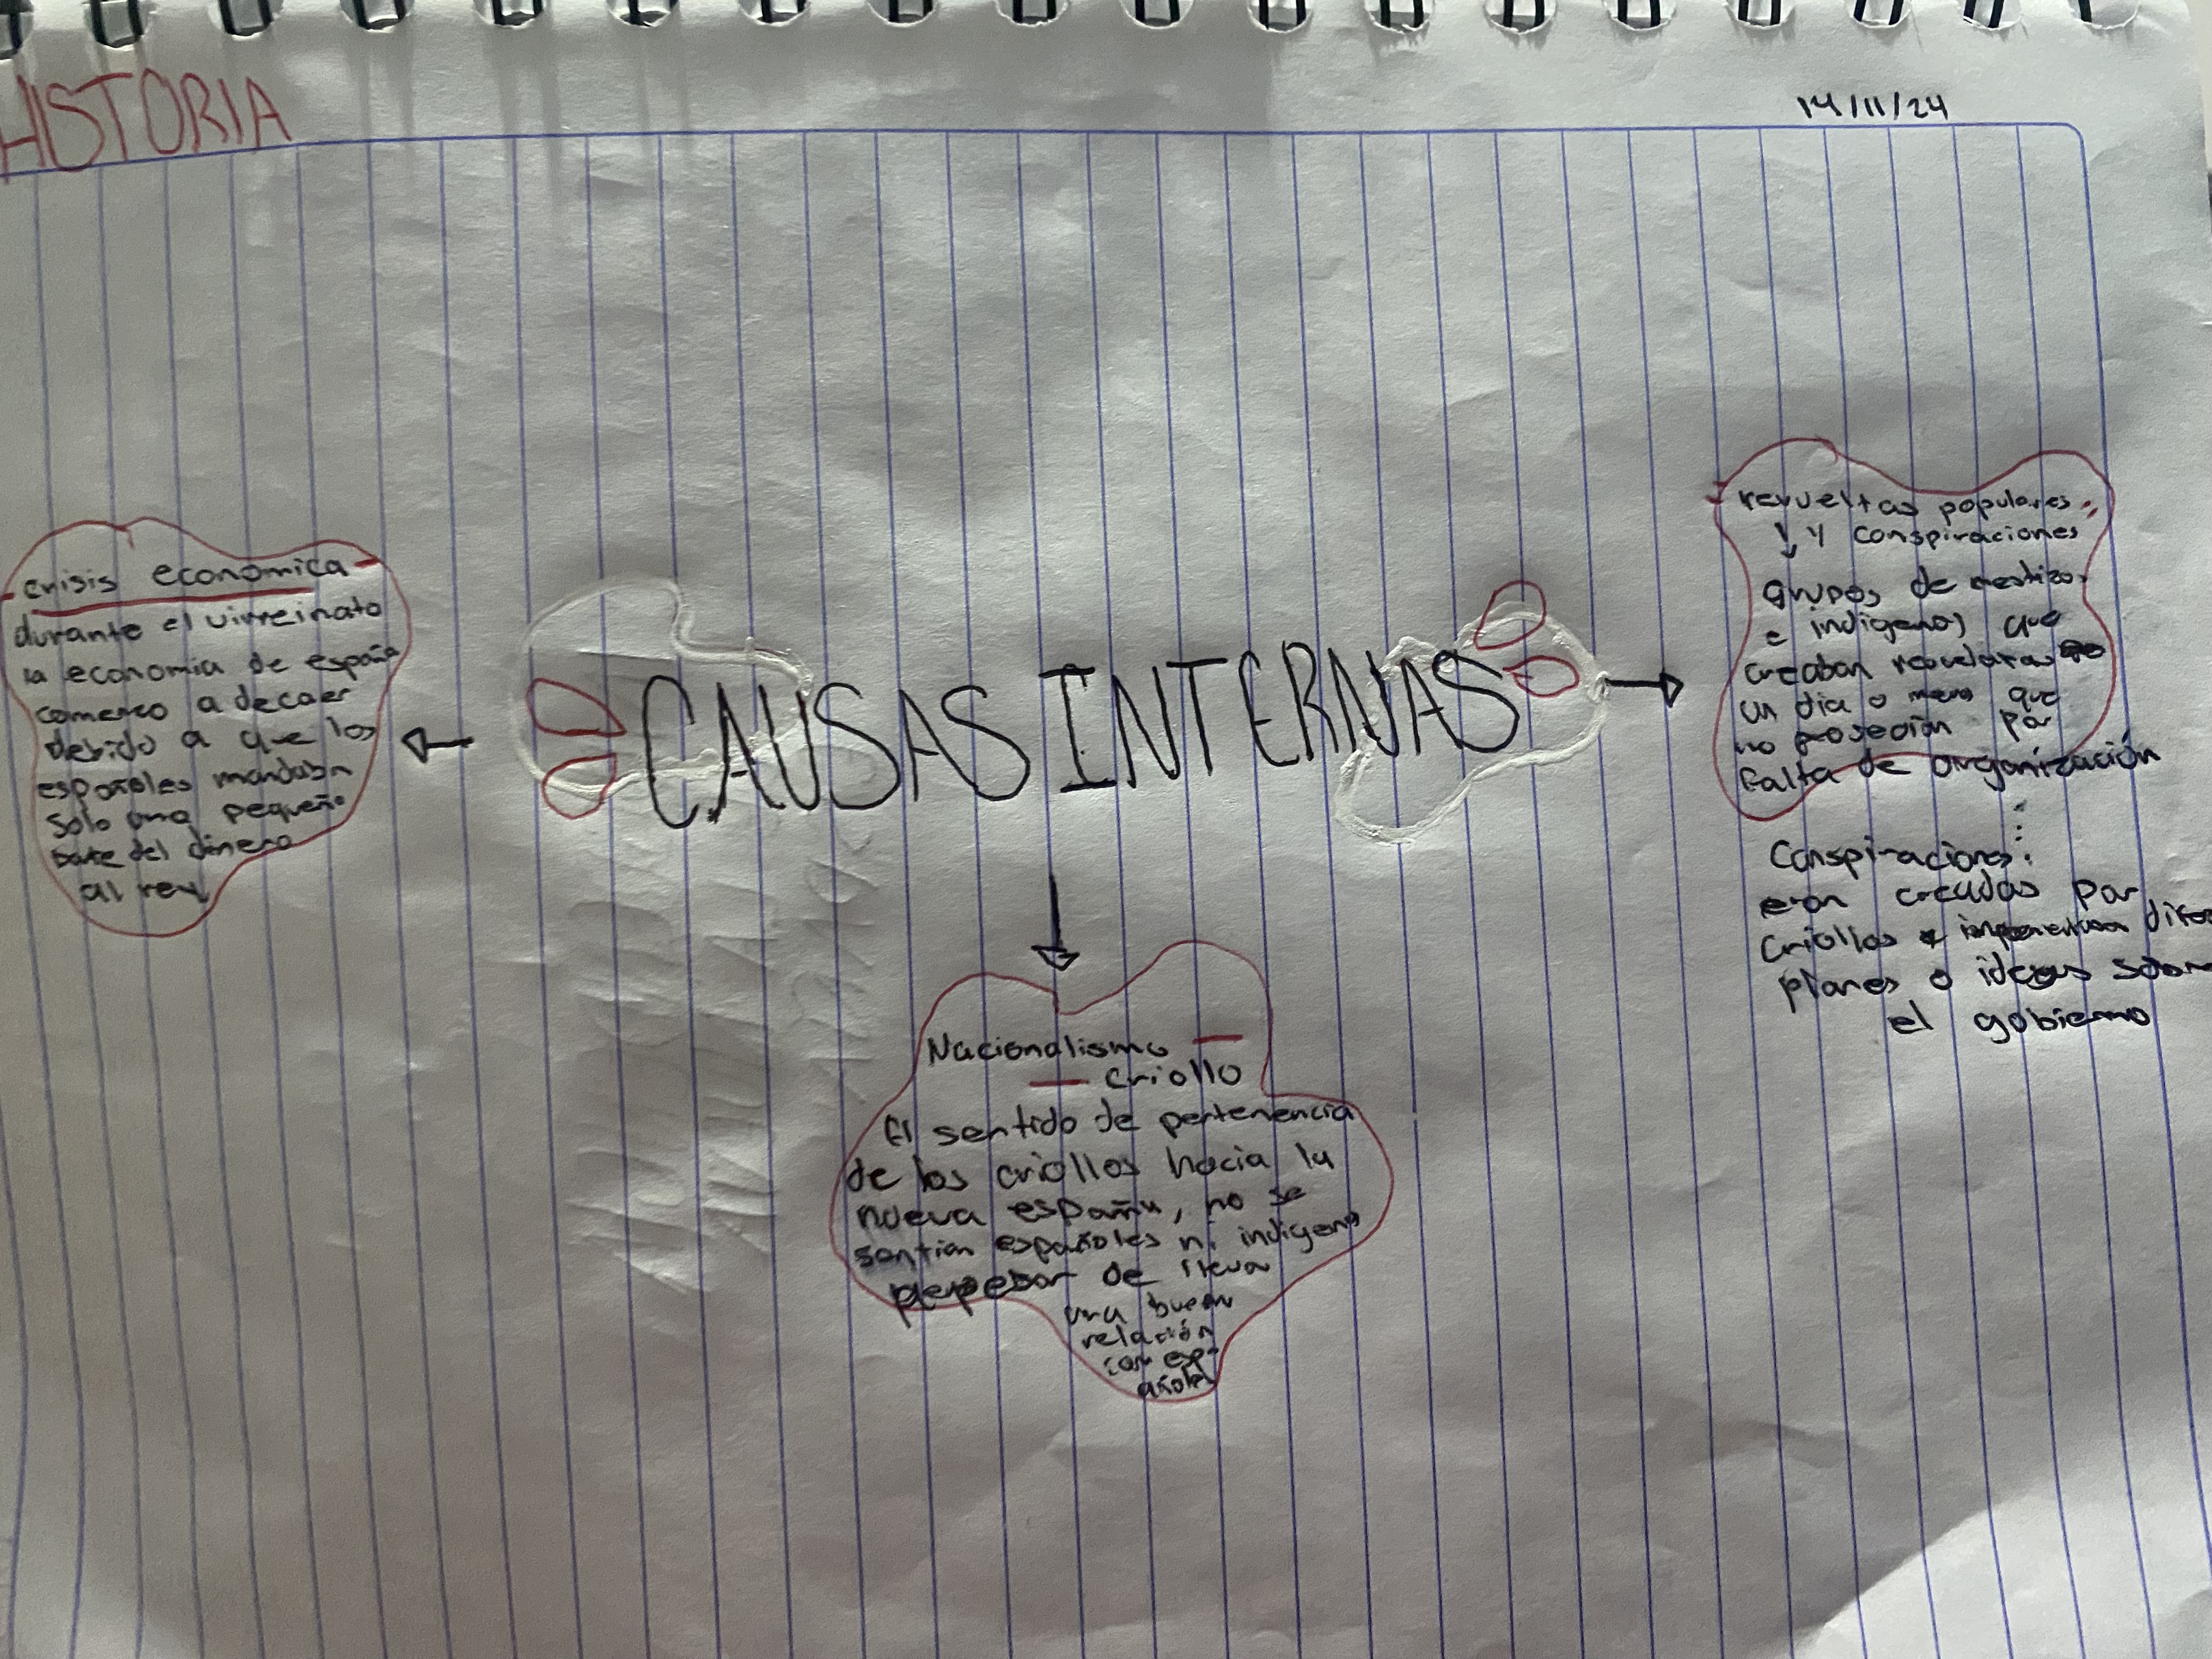 HISTORIA
14/11/24
CAUSAS INTERNAS
crisis economica
durante el virreinato
la economia de españa
comenso a decaer
debido a que los
españoles mandaban
solo una pequeña
parte del dinero
al rey
Nacionalismo
criollo
El sentido de pertenencia
de los criollos hacia la
nueva españa, no se
sentian españoles ni indigenas
de
una buena
relación
con esp-
añoles
revueltas populares
y conspiraciones
grupos de mestizos
e indigenas que
creaban
un dia o menos que
no por
falta de organización
Conspiraciones:
eran creadas por
criollos
planes o ideas sobre
el gobierno